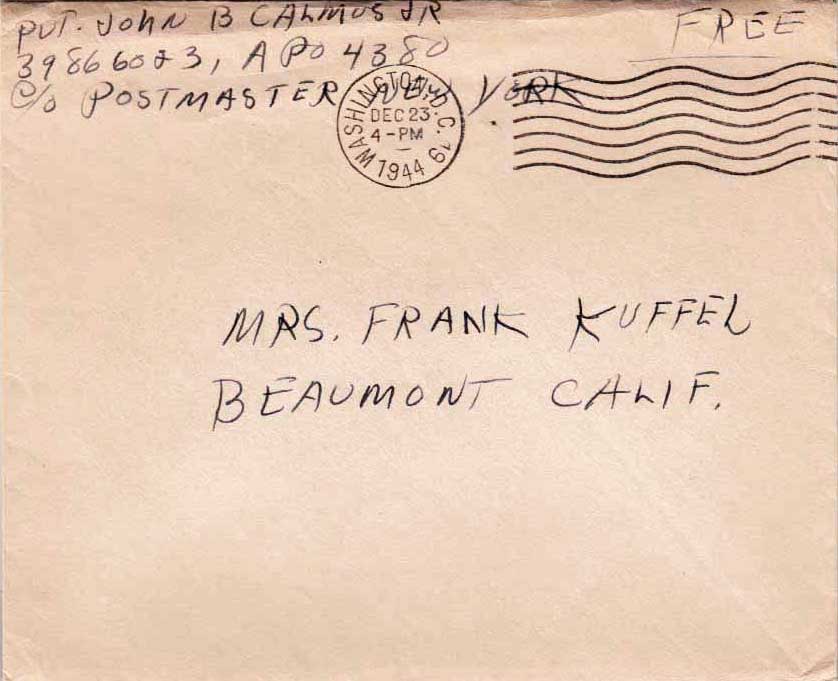 PVT. JOHN B CALMUS JR
FREE
39866023, APO 4380
C/O POSTMASTER NEW YORK
WASHINGTON, D.C. 19
DEC 23
4-PM
1944
MRS. FRANK KUFFEL
BEAUMONT CALIF.